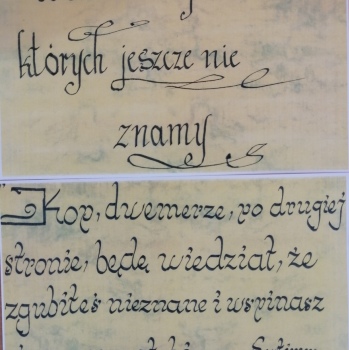 których jeszcze nie
znamy
Kop, dwemerze, po drugiej
stronie, będę wiedział, że
zgubiłeś nieznane i wspinasz